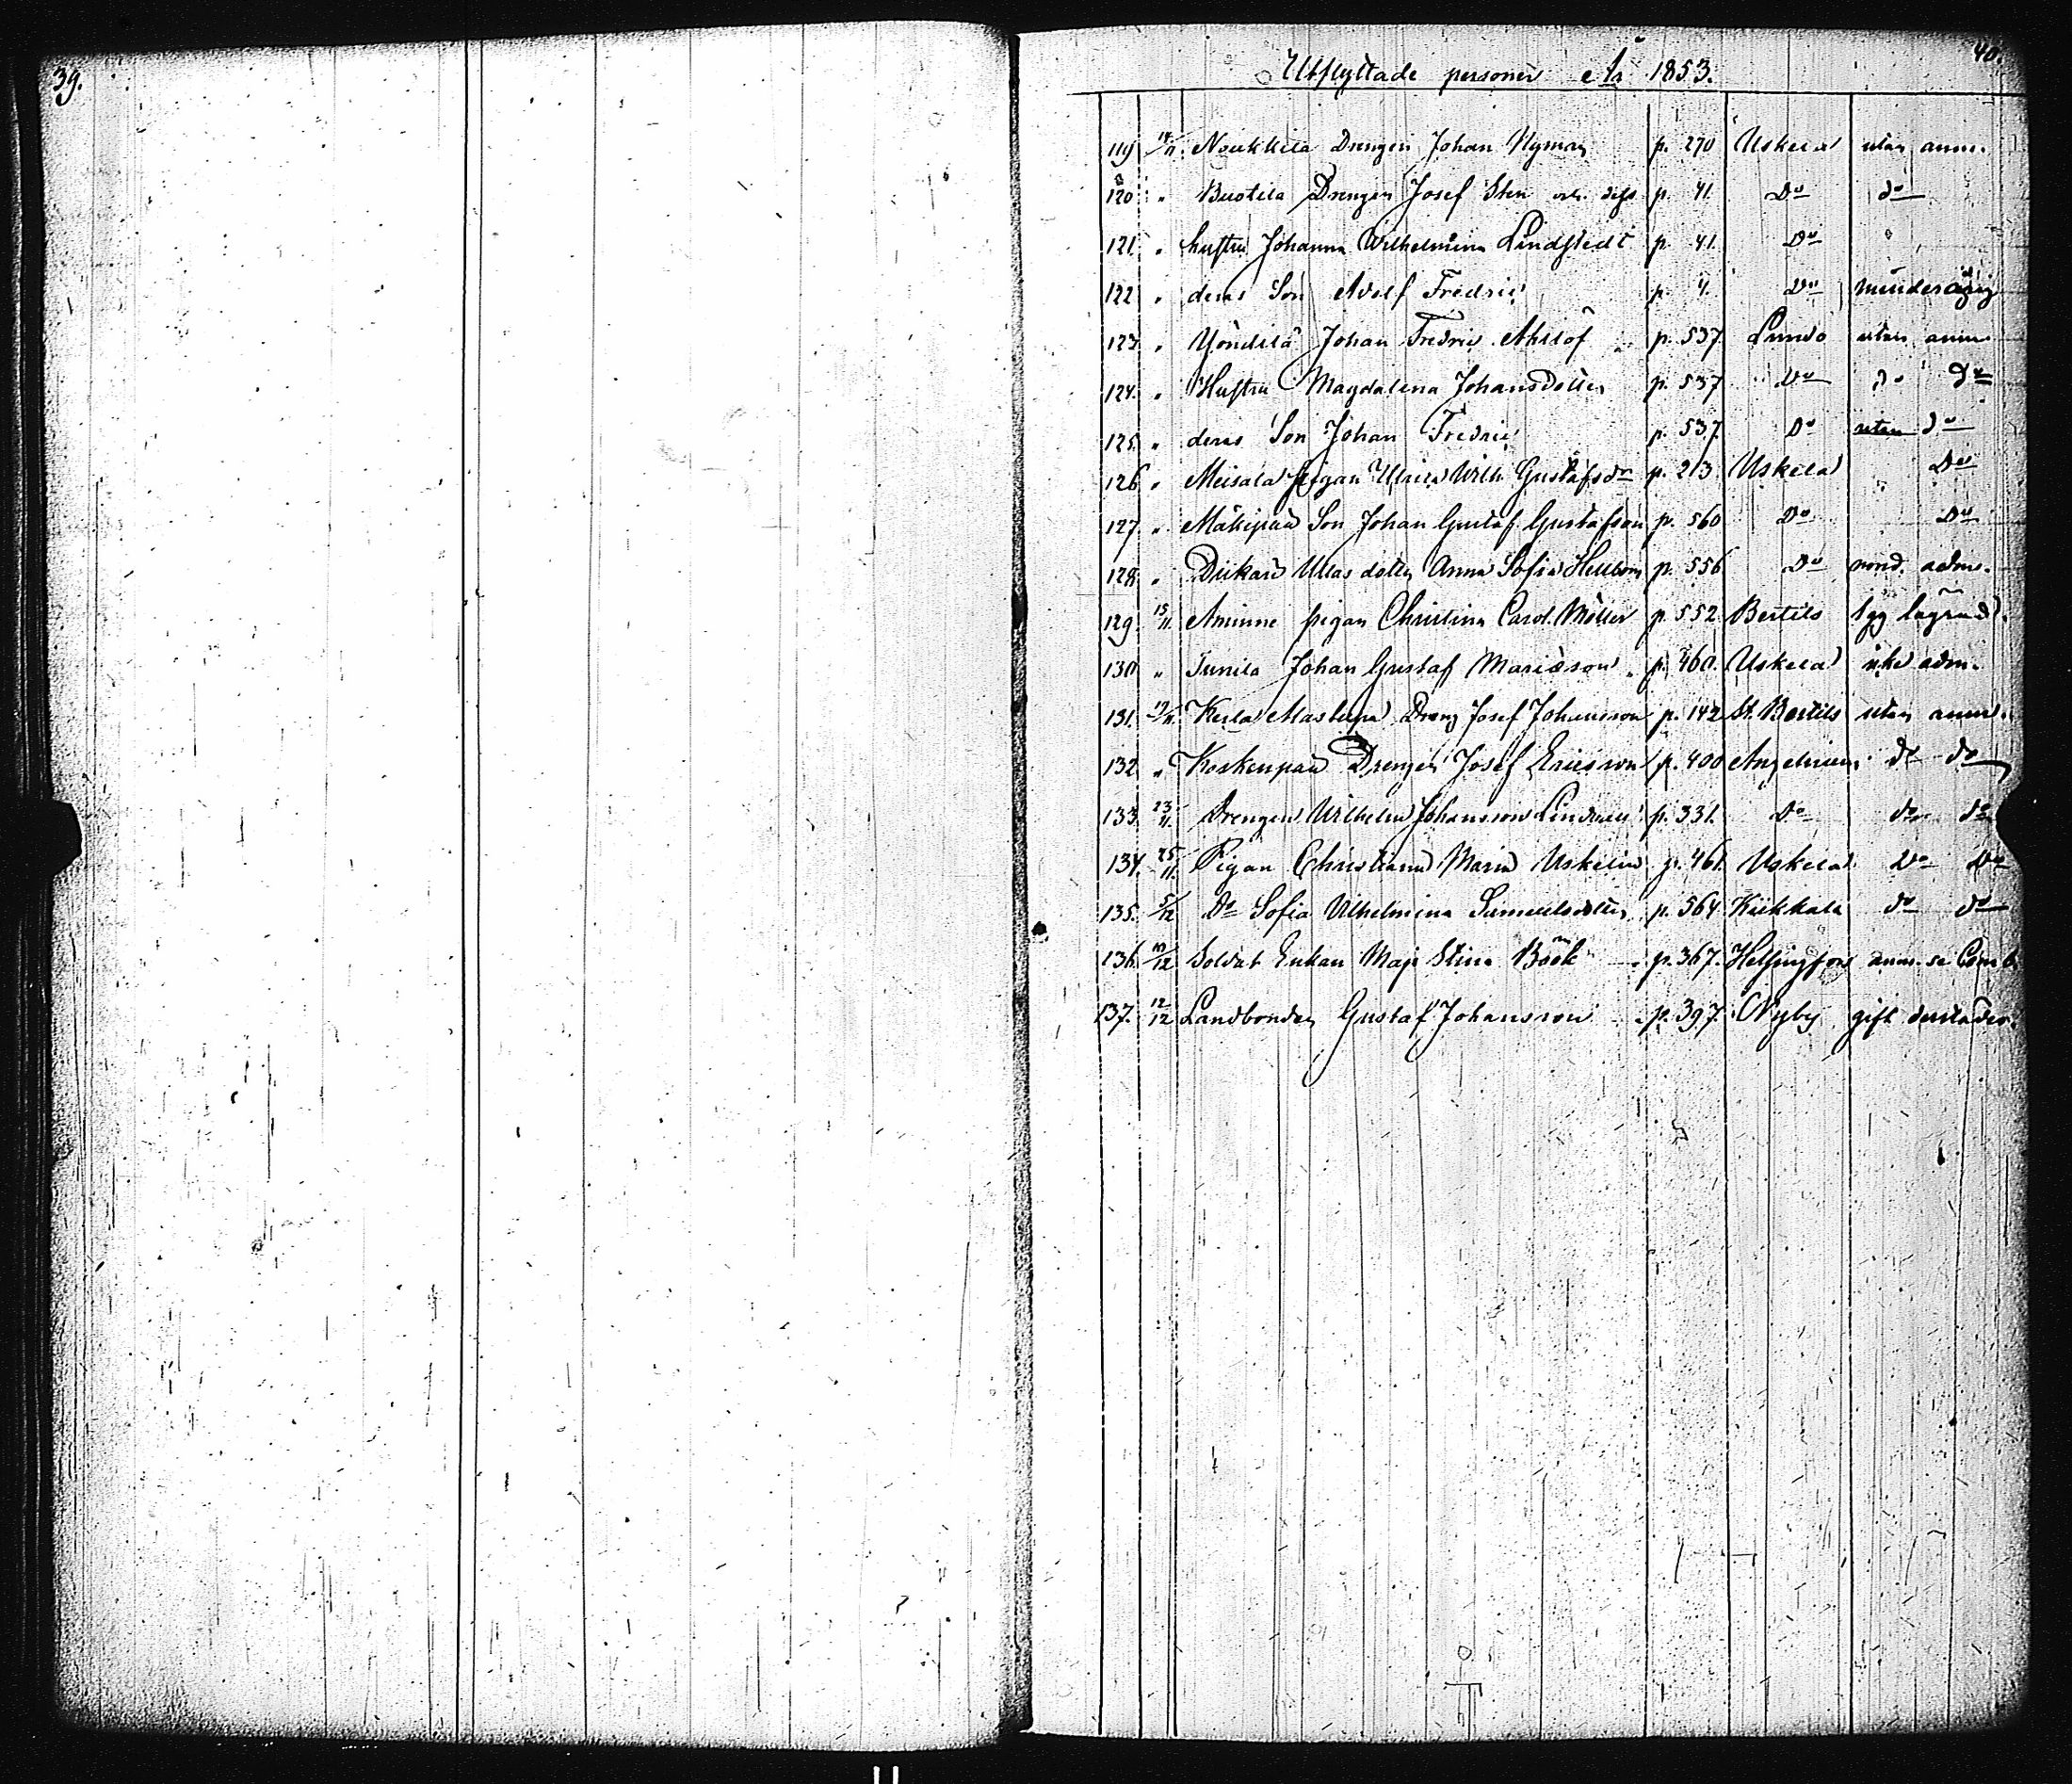 39.
40.
Utflyttade personer År 1853.
119 14/11. Noukkila Drengen Johan Nyman p. 270 Uskela utan anm.
120 " Drengen Josef Sten och dess p. 41. Do do
121. " hustru Johanna Wilhelmina Lindstedt p. 41. Do "
122 " deras Son Adolf Fredric p. 4. Do minderårig
123 " Yöndilä Johan Fredric Ahllöf p. 537. Lundo utan anm.
124. " Hustru Magdalena Johansdotter p. 537 Do do do
125. " deras Son Johan Fredric p. 537. Do utan do
126 " Meisala Pigan Ulrica Wilh. Gustafsdr p. 213. Uskela " Do
127 " Mäkipää Son Johan Gustaf Gustafsson p. 560 Do Do
128. " Ullas dotter Anna Sofia p. 556 Do adm.
129. 15/11. Aminne pigan Christina Carol. Möller p. 552 Bertils
130 " Junila Johan Gustaf Mariæson p. 460. Uskela icke adm.
131. 17/11. Kesla Dreng Josef Johansson p. 142 St. Bertils utan anm.
132 " Koskenpää Drengen Josef Ericsson p. 400 Angelniemi do do
133. 23/11. Drengen Wilhelm Johansson p. 331. Do do do
134. 25/11. Pigan Christiana Maria Uskelin p. 461. Uskela Do Do
135. 5/12 Do Sofia Wilhelmina Samuelsdotter p. 564 Kiikkala do do
136. 10/12 Soldat Enkan Maja Stina Böök p. 367. Helsingfors anm. se Comb.
137. 12/12 Landbonden Gustaf Johansson p. 397. Nyby gift